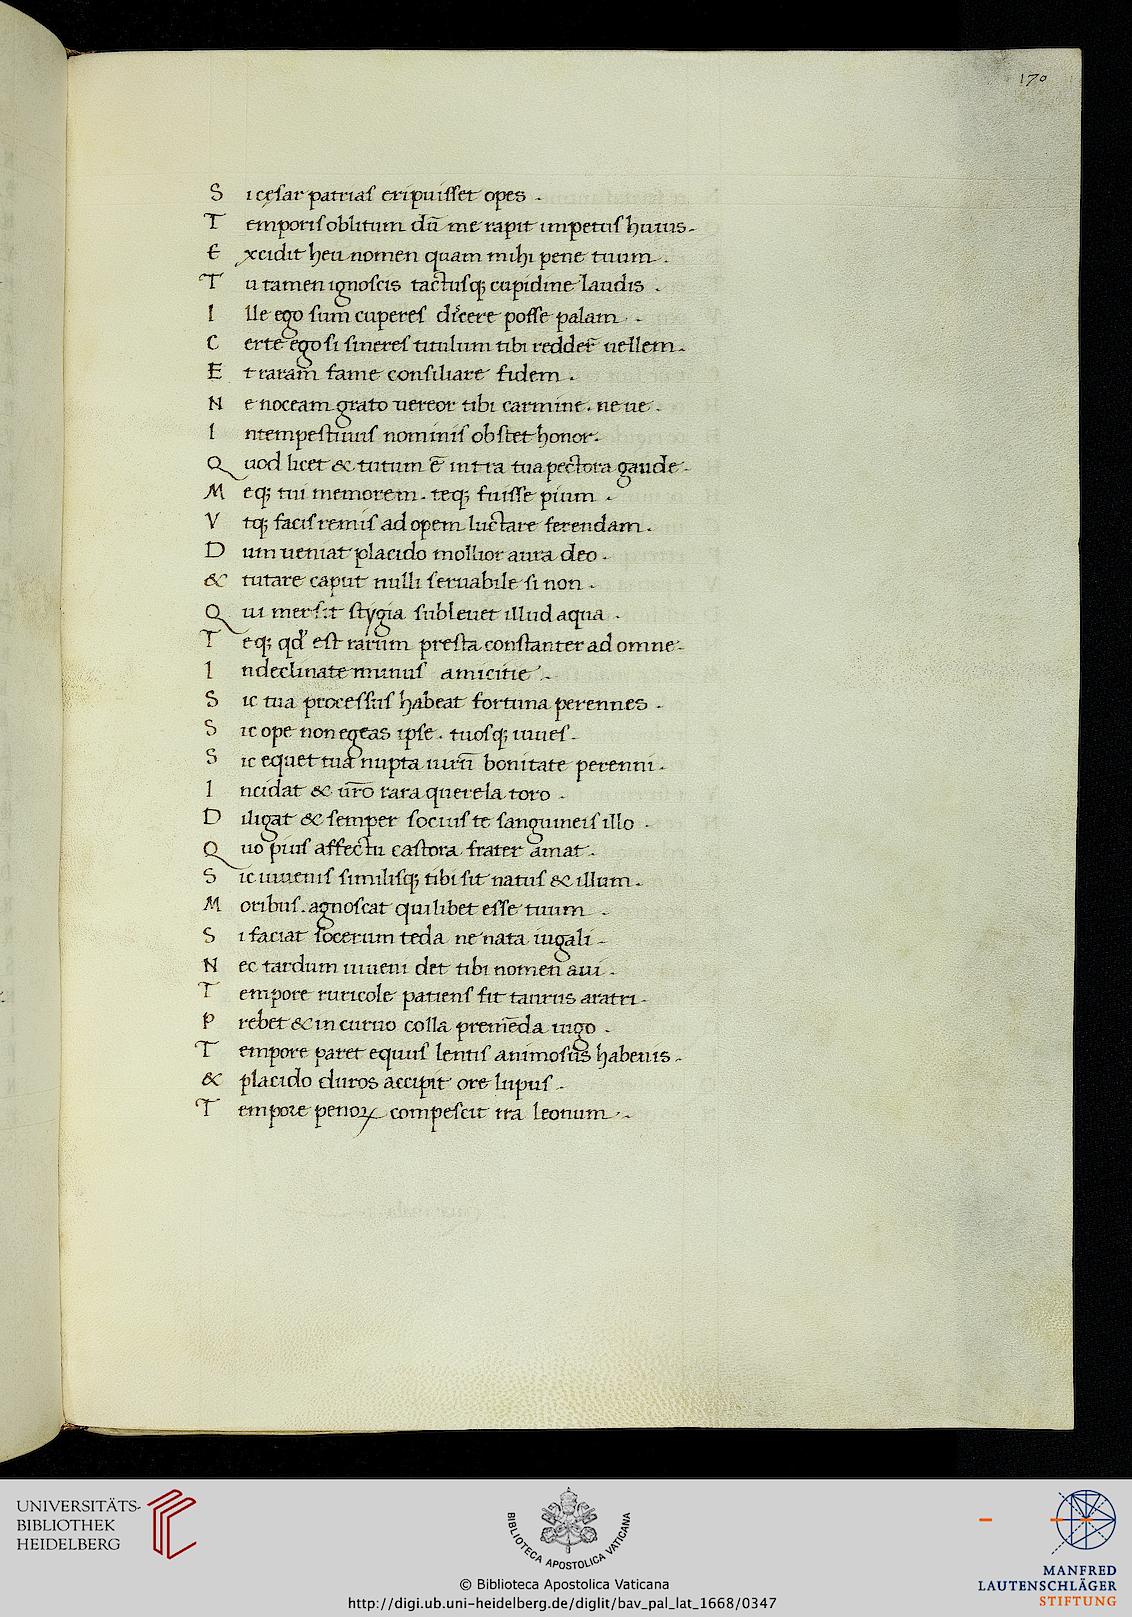 170
S i cęsar patrias eripuisset opes .
T emporis oblitum dū me rapit impetus huius.
E xcidit heu nomen quam mihi pene tuum .
T u tamen ignoscis tactusq; cupidine laudis .
I lle ego sum cuperes dicere posse palam .
C erte ego si sineres titulum tibi redder̄ uellem.
E t raram fame consiliare fidem .
N e noceam grato uereor tibi carmine . neue .
I ntempestiuus nominis obstet honor.
Q uod licet & tutum ē intra tua pectora gaude.
M eq; tui memorem . teq; fuisse pium .
V tq; facis remis ad opem luctare ferendam .
D um ueniat placido mollior aura deo .
& tutare caput nulli seruabile si non .
Q ui mersit stygia subleuet illud aqua .
T eq; qd' est rarum presta constanter ad omne.
I ndeclinate munus amicitie .
S ic tua processus habeat fortuna perennes .
S ic ope non egeas ipse . tuosq; iuues .
S ic equet tua nupta uirū bonitate perenni .
I ncidat & ur̄o rara querela toro .
D iligat & semper socius te sanguineis illo .
Q uo pius affectu castora frater amat .
S ic iuuenis similisq; tibi sit natus & illum .
M oribus . agnoscat quilibet esse tuum .
S i faciat socerum teda ne nata iugali .
N ec tardum iuueni det tibi nomen aui .
T empore ruricole patiens fit taurus aratri .
P rebet & incuruo colla premēda iugo .
T empore paret equus lentis animosus habenis .
& placido duros accipit ore lupus .
T empore penoꝝ compescit ira leonum .
UNIVERSITÄTS-
BIBLIOTHEK
HEIDELBERG
BIBLIOTECA APOSTOLICA VATICANA
© Biblioteca Apostolica Vaticana
http://digi.ub.uni-heidelberg.de/diglit/bav_pal_lat_1668/0347
MANFRED
LAUTENSCHLÄGER
STIFTUNG